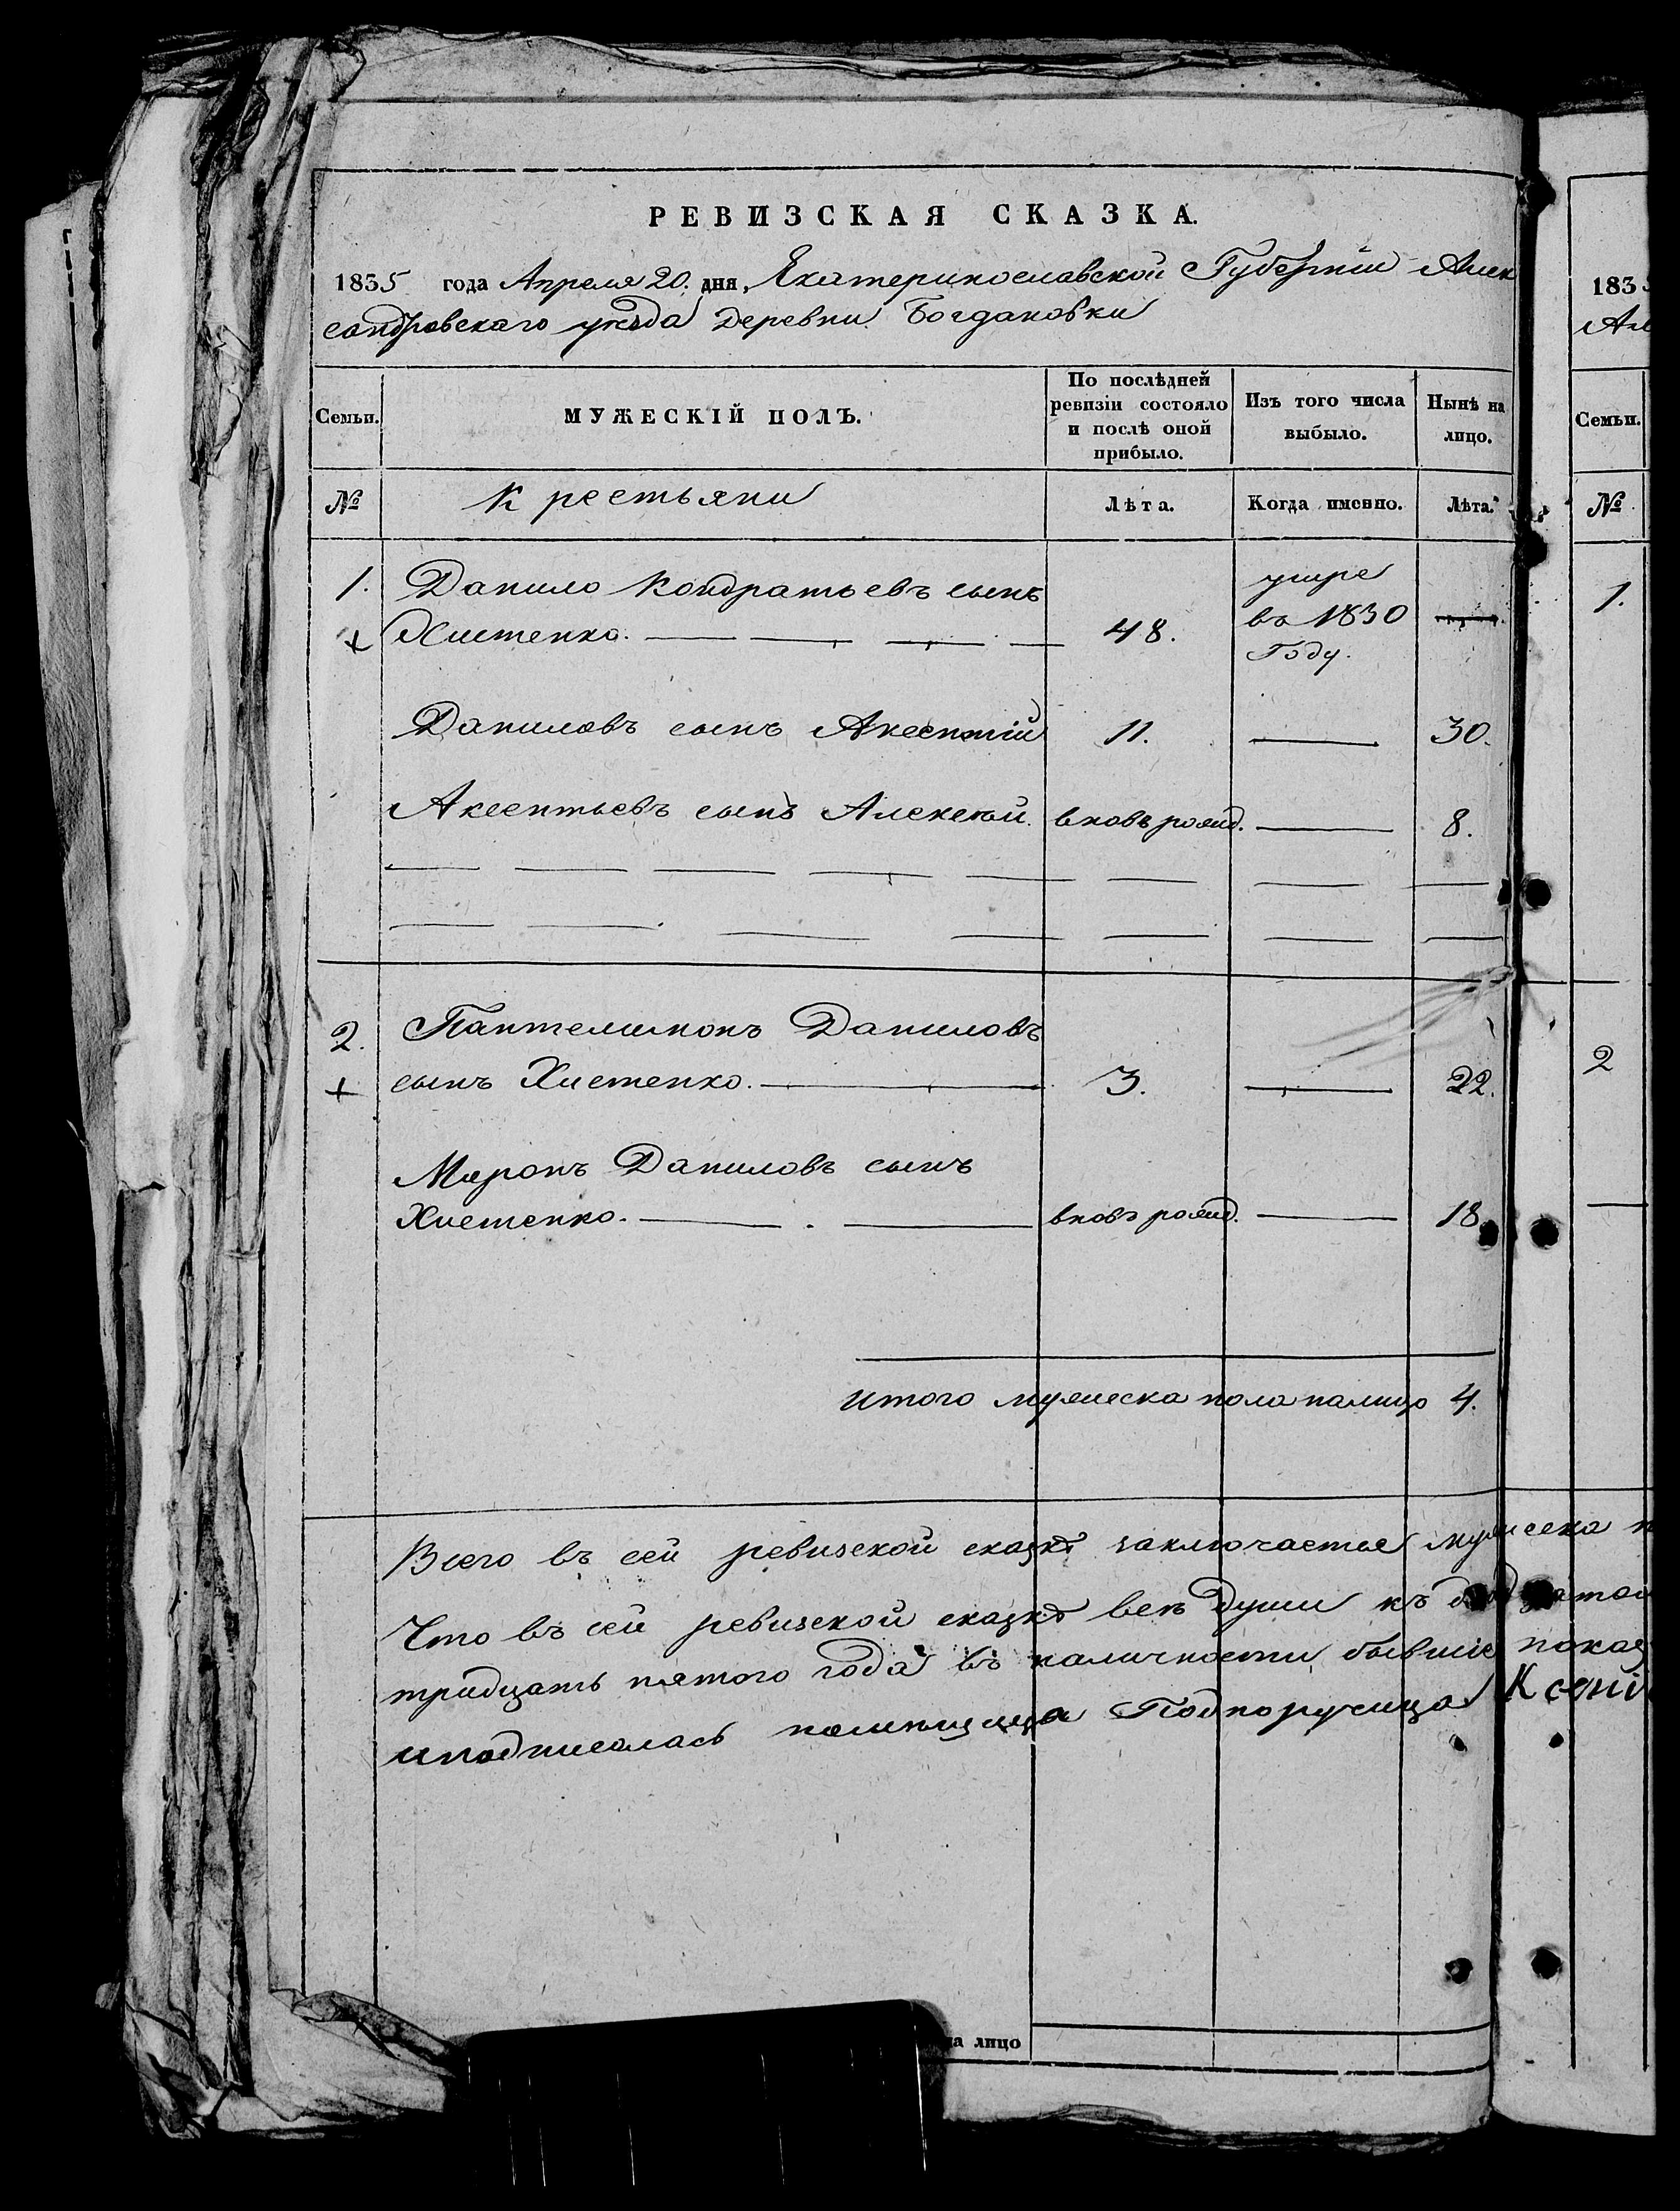 РЕВИЗСКАЯ СКАЗКА.
1835 года Апреля 20. дня, Екатеринославской Губерніи Алек
сандровскаго уезда деревни Богдановки
Семьи.
МУЖЕСКІЙ ПОЛЪ.
По послѣдней ревизіи состояло и послѣ оной прибыло.
Изъ того числа выбыло.
Нынѣ на лицо.
№
Крестьяни
Лѣта.
Когда именно.
Лѣта.
1. Данило Кондратьевъ сынъ
Хистенко. 48. умре въ 1830 Году.
Даниловъ сынъ Аксентій 11. 30.
Аксентьевъ сынъ Алексей. вновь рожд. 8.
2. Пантелимонъ Даниловъ
сынъ Хистенко. 3. 22.
Миронъ Даниловъ сынъ
Хистенко. вновь рожд. 18.
итого мужеска пола налицо 4.
Всего въ сей ревизской сказкѣ заключается мужеска
Что въ сей ревизской сказкѣ всѣ души къ
тридцать пятого года въ наличности бывшіе показ
иподписалась помещица Подпоручица Ксені
на лицо
183
Ал
Семьи.
№
1.
2